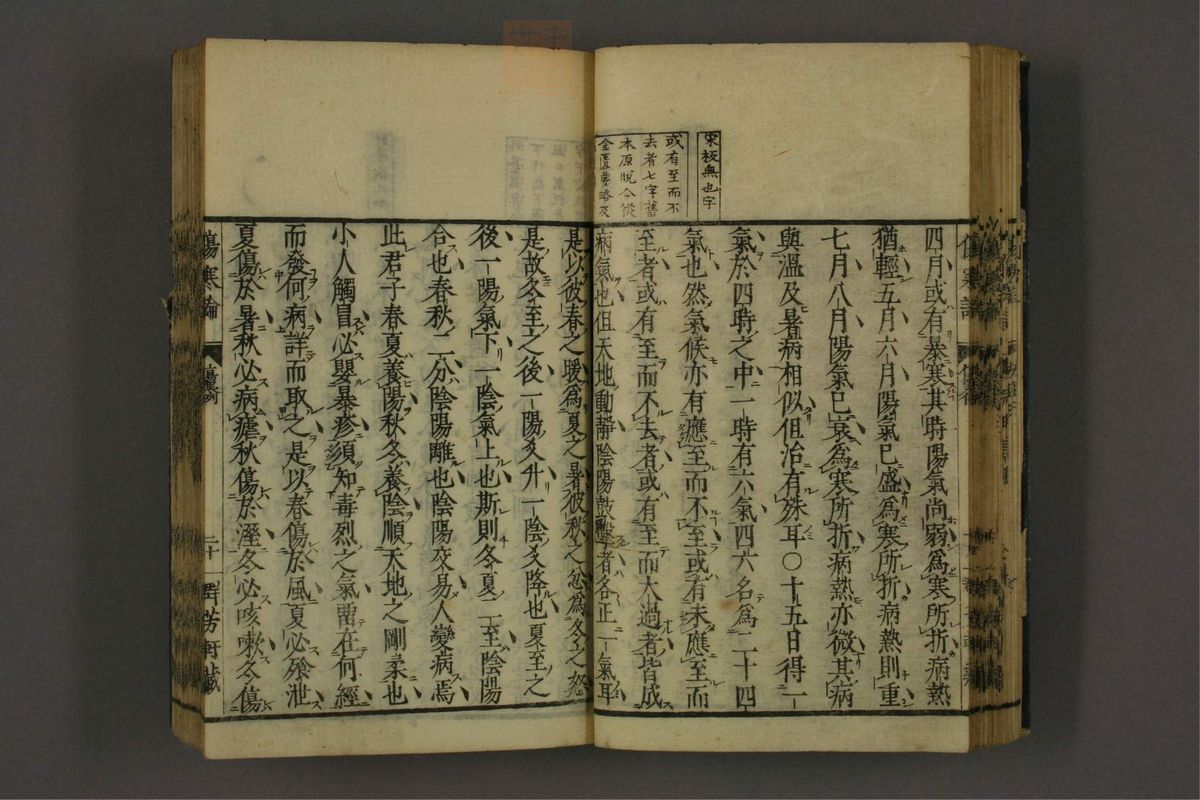 宋板無也字
或有至而不
去者七字舊
本原脫今從
金匱要略及
四月或有暴寒其時陽氣尚弱爲寒所折病熱
猶輕五月六月陽氣已盛爲寒所折病熱則重
七月八月陽氣已衰爲寒所折病熱亦微其病
與溫及暑病相似但治有殊耳〇十五日得一
氣於四時之中一時有六氣四六名爲二十四
氣也然氣候亦有應至而不至或有未應至而
至者或有至而不去者或有至而太過者皆成
病氣也但天地動靜陰陽鼓擊者各正一氣耳
是以彼春之暖爲夏之暑彼秋之忿爲冬之怒
是故冬至之後一陽爻升一陰爻降也夏至之
後一陽氣下一陰氣上也斯則冬夏二至陰陽
合也春秋二分陰陽離也陰陽交易人變病焉
此君子春夏養陽秋冬養陰順天地之剛柔也
小人觸冒必嬰暴疹須知毒烈之氣留在何經
而發何病詳而取之是以春傷於風夏必飱泄
夏傷於暑秋必病瘧秋傷於溼冬必咳嗽冬傷
傷寒論
二十
群芳軒藏